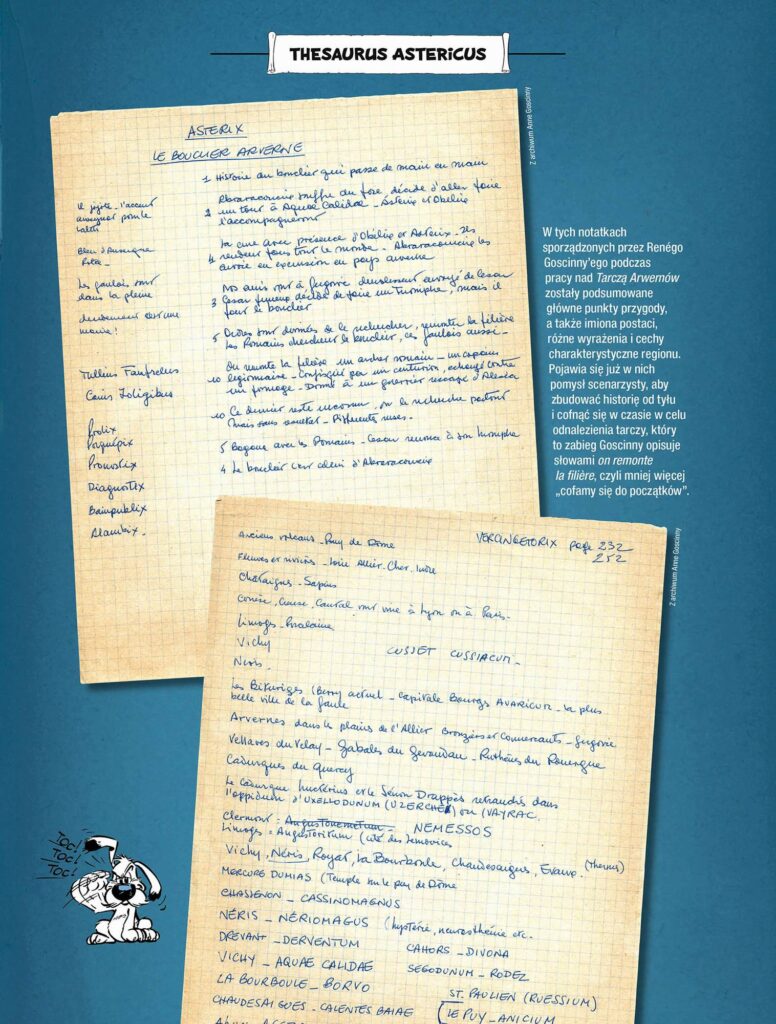 THESAURUS ASTERICUS
Z archiwum Anne Goscinny
ASTERIX
LE BOUCLIER ARVERNE
1 Histoire du bouclier qui passe de main en main
Abraracourcix souffre du foie, décide d'aller faire
2 un tour à Aquae Calidae - Astérix et Obélix
l'accompagneront
la cure avec présence d'Obélix et Astérix -
4 rendent fous tout le monde - Abraracourcix les
envoie en excursion en pays arverne
Nos amis vont à Gergovie envoyé de Cesar
3 Cesar furieux, décide de faire un triomphe, mais il
faut le bouclier
5 Ordres sont donnés de le rechercher, remonter la filière
les Romains cherchent le bouclier, les gaulois aussi -
On remonte la filière un archer romain - un copain
10 légionnaire - Confisqué par un centurion, échangé contre
un fromage - Donné à un guerrier rescapé d'Alesia
10 Ce dernier reste inconnu, on le recherche partout
Mais sans succès - Différentes ruses -
5 Bagarre avec les Romains - Cesar renonce à son triomphe
4 Le bouclier c'est celui d'Abraracourcix
l'accent
auvergnat pour le
latin
Bleu d'Auvergne
Les gaulois sont
dans la pleine
Tullius Fanfrelus
Caius Joligibus
Prolix
Pronostix
Diagnostix
Bainpublix
Alambix.
W tych notatkach
sporządzonych przez Renégo
Goscinny'ego podczas
pracy nad Tarczą Arwernów
zostały podsumowane
główne punkty przygody,
a także imiona postaci,
różne wyrażenia i cechy
charakterystyczne regionu.
Pojawia się już w nich
pomysł scenarzysty, aby
zbudować historię od tyłu
i cofnąć się w czasie w celu
odnalezienia tarczy, który
to zabieg Goscinny opisuje
słowami on remonte
la filière, czyli mniej więcej
„cofamy się do początków”.
Z archiwum Anne Goscinny
VERCINGETORIX page 232
252
Anciens volcans - Puy de Dôme
Fleuves et rivières - Loire Allier - Cher, Indre
Chataignes - Sapins
Corrèze, Creuse, Cantal vont vivre à Lyon ou à Paris -
Limoges - Porcelaine
Vichy
CUSSET CUSSIACUM -
Néris -
Les Bituriges (Berry actuel - capitale Bourges AVARICUM - la plus
belle ville de la Gaule
Arvernes dans les plaines de l'Allier Bronziers et Commercants - Gergovie
Vellaves du Velay - Gabales du Gevaudan - Ruthènes du Rouergue
Cadurques du Quercy
Le Cadurque Luctérius et le Sénon Drappès retranchés dans
l'oppidum d'UXELLODUNUM (UZERCHE) ou (VAYRAC.
Clermont = Augustonemetum = NEMESSOS
Limoges = Augustoritum (cité des Lemovices
Vichy, Néris, Royat, La Bourboule, Chaudesaigues, Evaux. (Thermes)
MERCURE DUMIAS (Temple sur le puy de Dôme
CHASSENON - CASSINOMAGNUS
NÉRIS - NÉRIOMAGUS (hystérie, neurasthénie etc.
DREVANT - DERVENTUM
CAHORS - DIVONA
VICHY - AQUAE CALIDAE
SEGODUNUM - RODEZ
LA BOURBOULE - BORVO
ST. PAULIEN (RUESSIUM)
CHAUDESAIGUES - CALENTES BAIAE
LE PUY - ANICIUM
TOC!
TOC!
TOC!